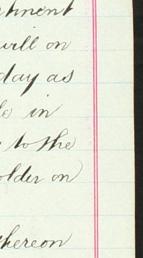 tment
will on
day as
in
to the
older on
thereon